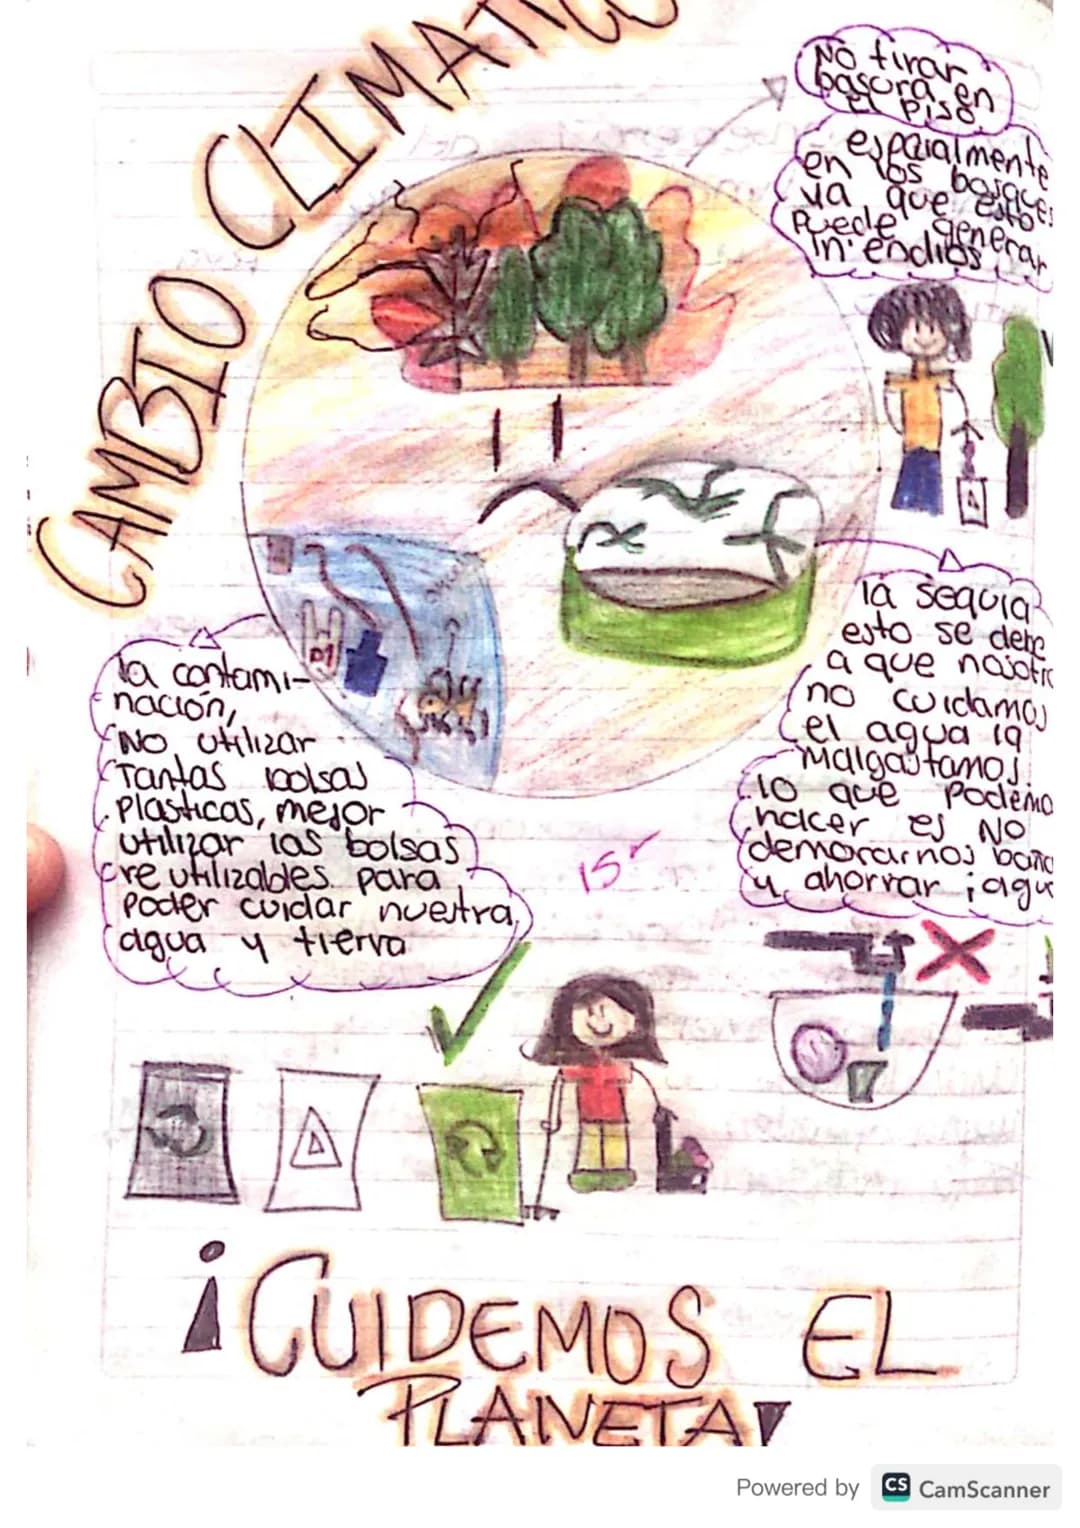 CAMBIO CLIMATICO
No tirar
basura en
el piso.
espcialmente
en los bosques
ya que esto
puede generar
incendios
la sequia
esto se debe
a que nosotr
no cuidamos
el agua la
malgastamos
lo que podemo
hacer es NO
demorarnos baña
y ahorrar ¡agu
la contami-
nación,
NO utilizar
Tantas bolsas
Plasticas, mejor
utilizar las bolsas
reutilizables para
Poder cuidar nuestra
agua y tierra
15
¡CUIDEMOS EL
PLANETA!
Powered by CS CamScanner